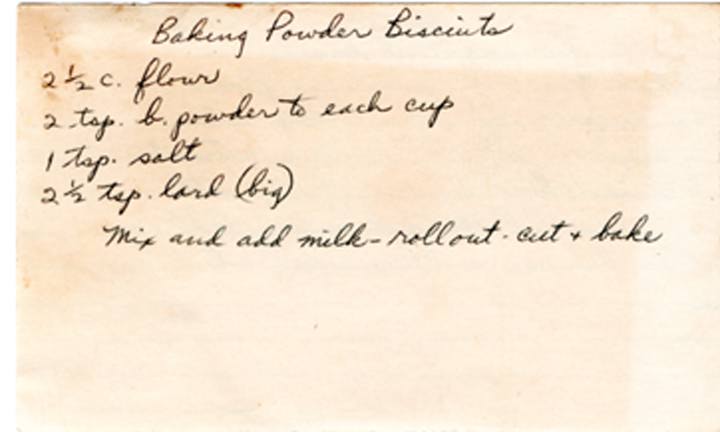 Baking Powder Biscuits
2 1/2 c. flour
2 tsp. b. powder to each cup
1 tsp. salt
2 1/2 tsp. lard (big)
Mix and add milk - roll out - cut + bake